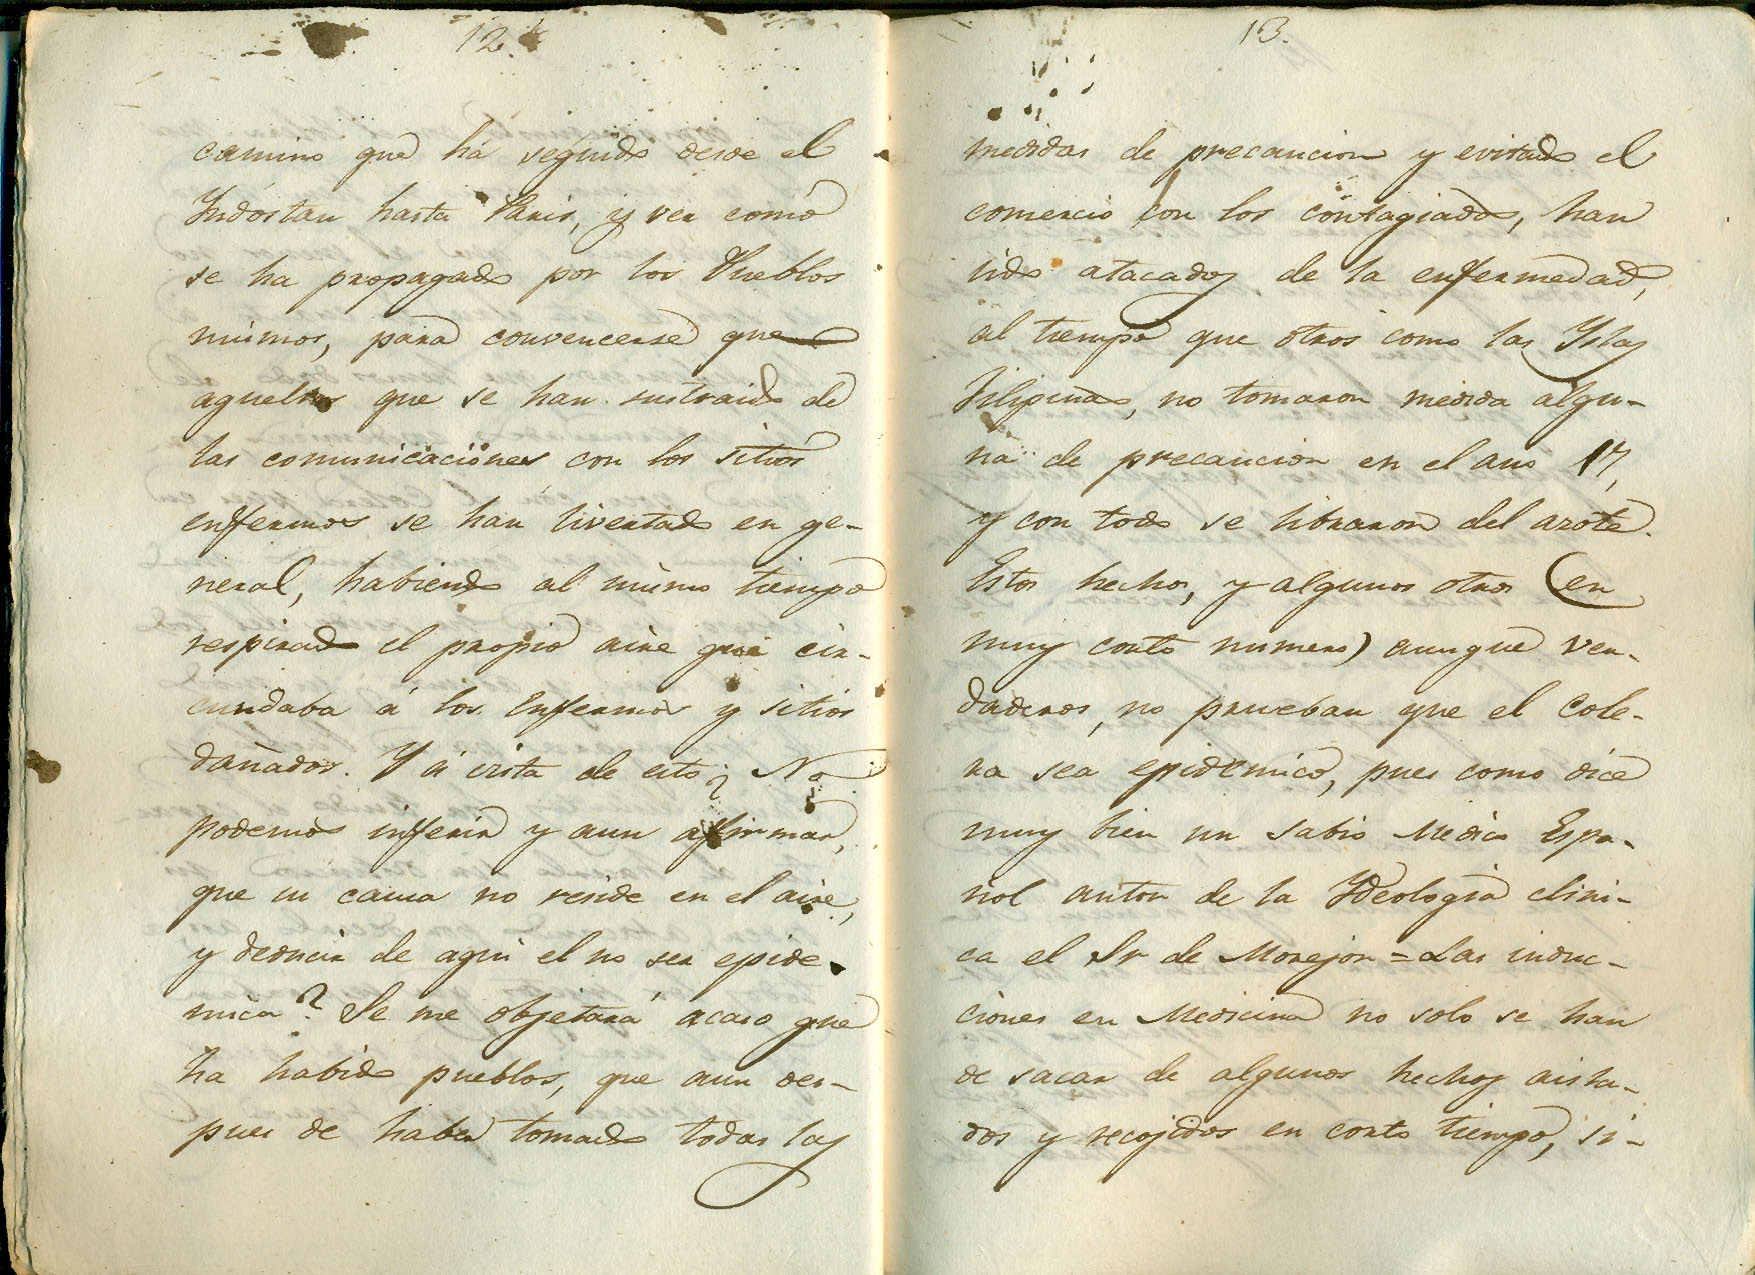 12.
camino que há seguido desde el
Yndostan hasta Paris, y ver como
se ha propagado por los Pueblos
mismos, para convencerse que
aquellos que se han sustraido de
las comunicaciones con los sitios
enfermos se han livertado en ge-
neral, habiendo al mismo tiempo
respirado el propio aire que cir-
cundaba á los Enfermos y sitios
dañados. Y á vista de esto ¿ No
podemos inferir y aun afirmar,
que su causa no reside en el aire,
y deducir de aqui el no ser epide-
mica? Se me objetará acaso que
ha habido pueblos, que aun des-
pues de haber tomado todas las
13.
medidas de precaucion y evitado el
comercio con los contagiados, han
sido atacados de la enfermedad,
al tiempo que otros como las Yslas
Filipinas, no tomaron medida algu-
na de precaucion en el año 17,
y con todo se libraron del azote.
Estos hechos, y algunos otros (en
muy corto numero) aunque ver-
daderos, no prueban que el Cole-
ra sea epidemico, pues como dice
muy bien un sabio Medico Espa-
ñol autor de la Ydeologia clini-
ca el Sr de Morejon = Las induc-
ciones en Medicina no solo se han
de sacar de algunos hechos aisla-
dos y recojidos en corto tiempo, si-